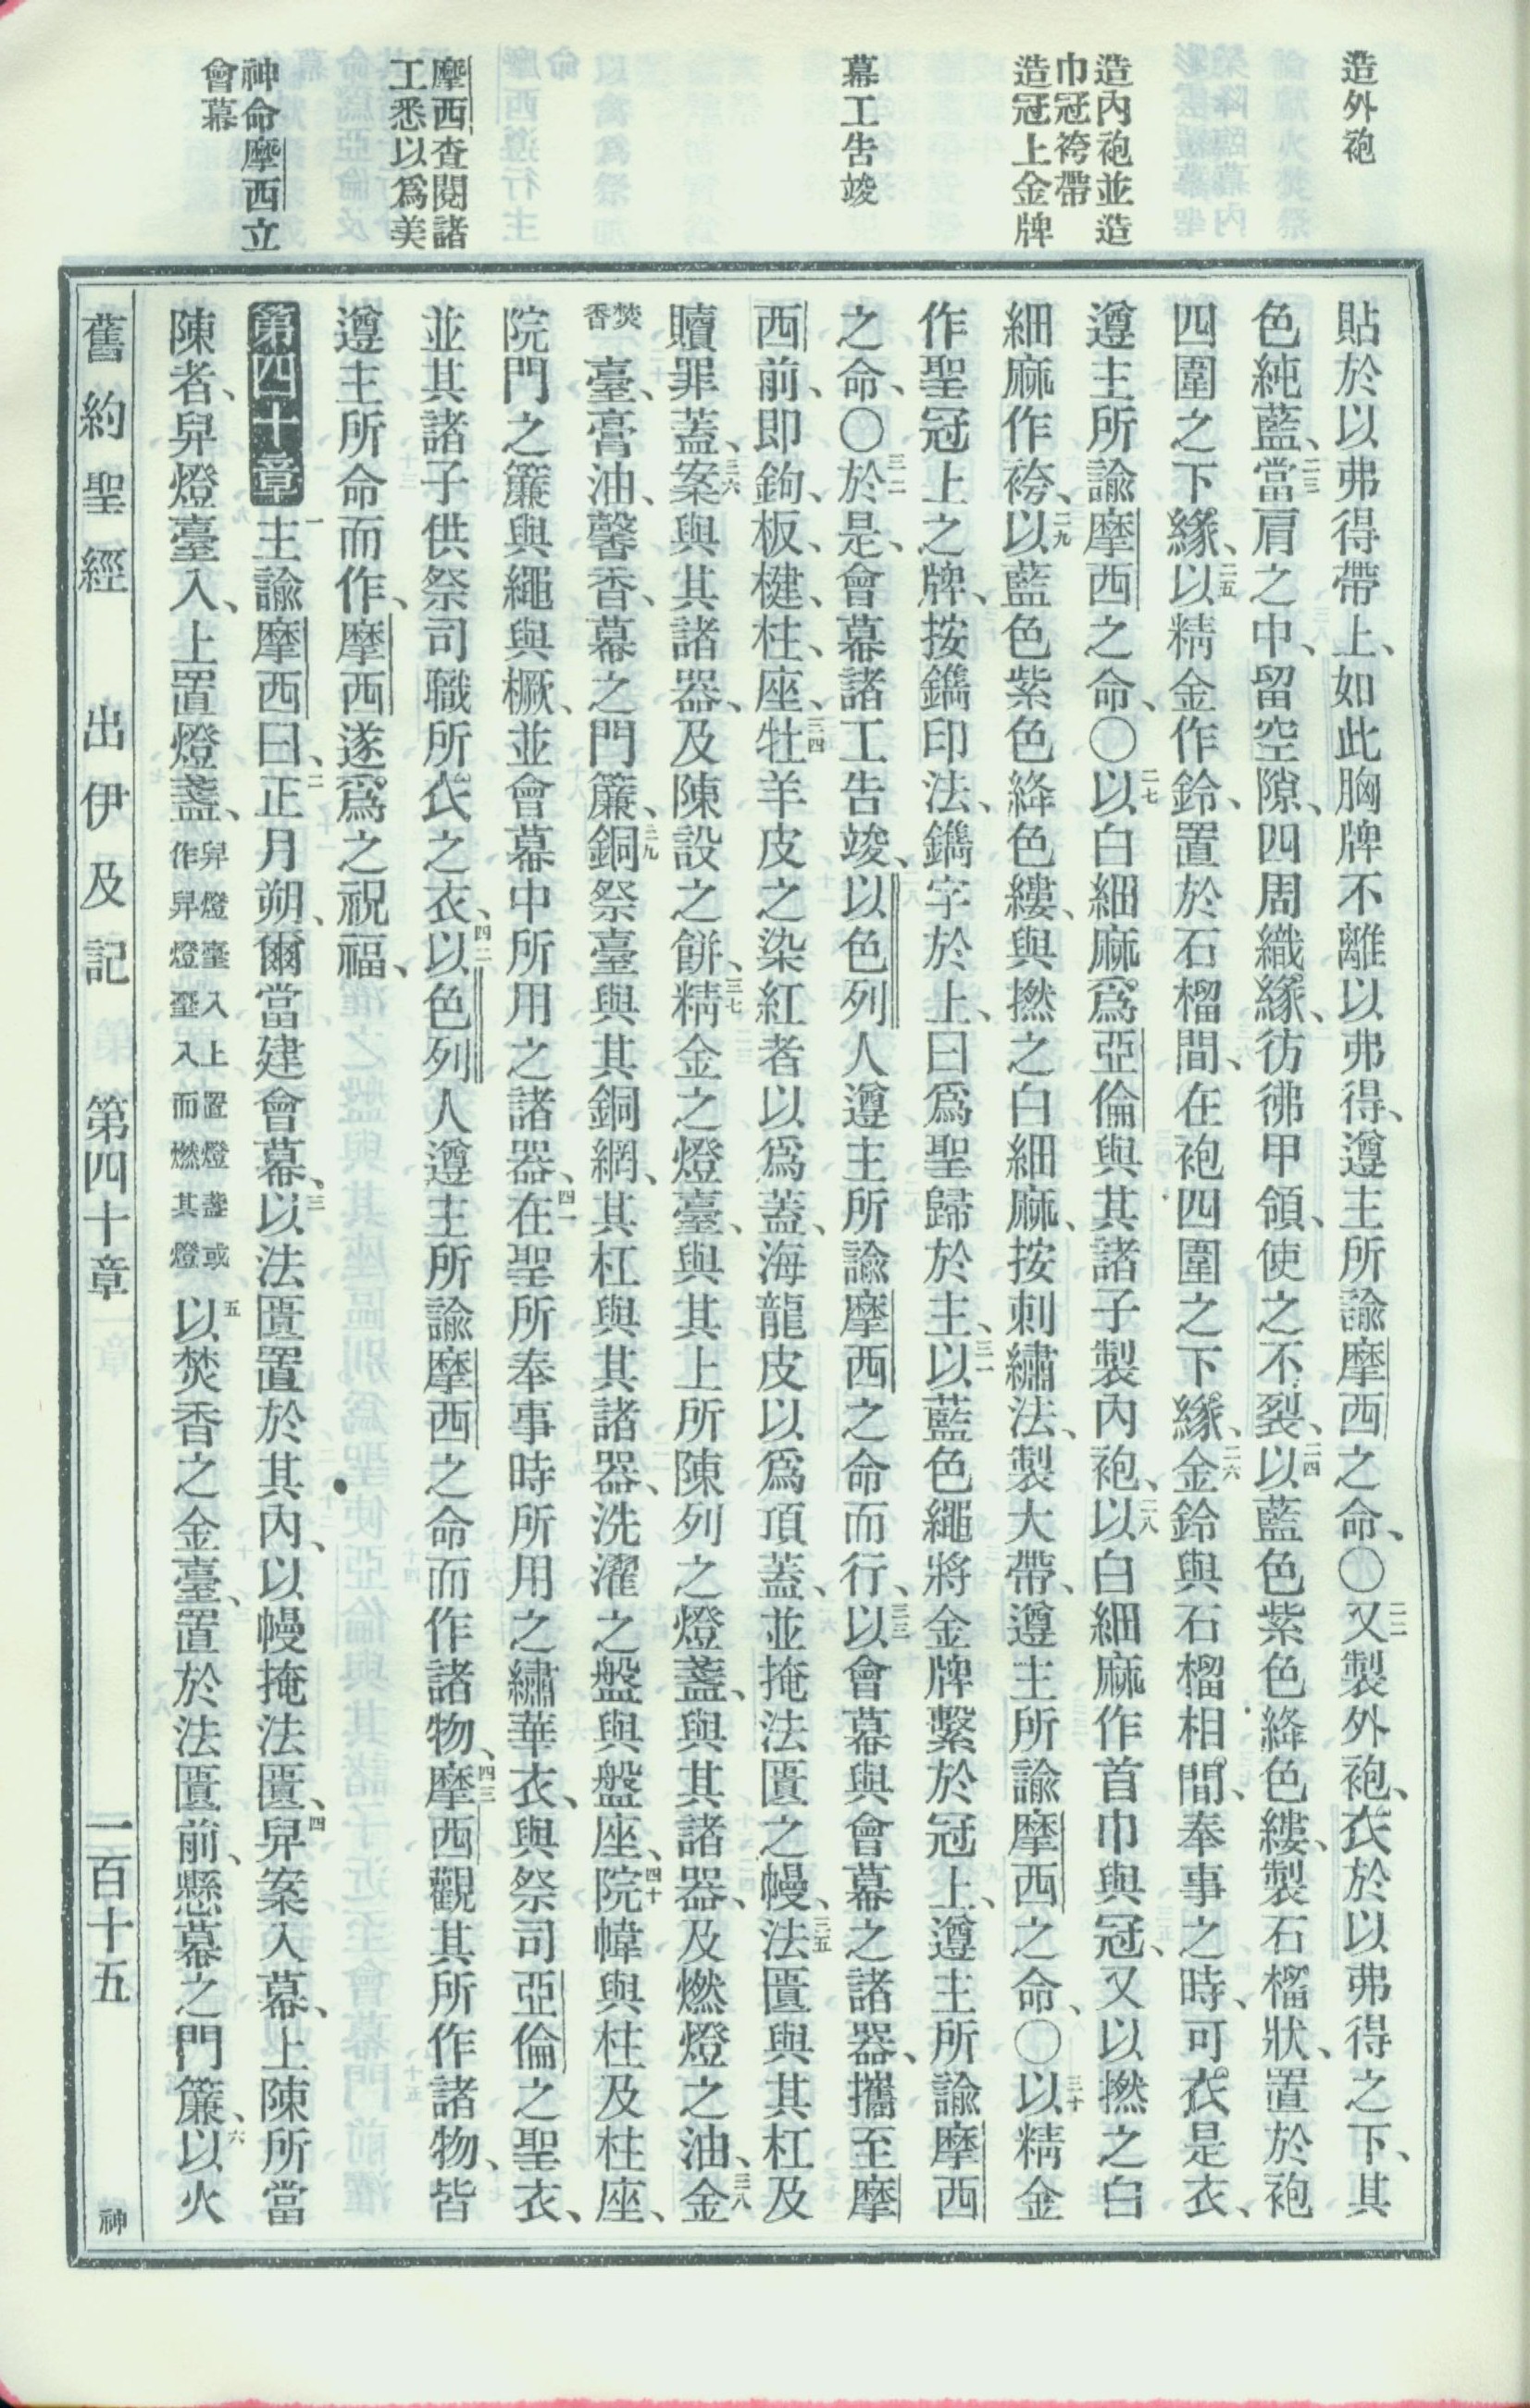 造外袍
造內袍並造
巾冠袴帶
造冠上金牌
幕工告竣
摩西查閱諸
工悉以爲美
神命摩西立
會幕
貼於以弗得帶上、如此胸牌不離以弗得、遵主所諭摩西之命、○二二又製外袍、衣於以弗得之下、其
色純藍、二三當肩之中、留空隙、四周織緣、彷彿甲領、使之不裂、二四以藍色紫色絳色縷、製石榴狀、置於袍
四圍之下緣、二五以精金作鈴、置於石榴間、在袍四圍之下緣、二六金鈴與石榴相間、奉事之時、可衣是衣、
遵主所諭摩西之命、○二七以白細麻爲亞倫與其諸子製內袍、二八以白細麻作首巾與冠、又以撚之白
細麻作袴、二九以藍色紫色絳色縷、與撚之白細麻、按刺繡法、製大帶、遵主所諭摩西之命、○三十以精金
作聖冠上之牌、按鐫印法、鐫字於上、曰爲聖歸於主、三一以藍色繩將金牌繫於冠上、遵主所諭摩西
之命、○三二於是、會幕諸工告竣、以色列人遵主所諭摩西之命而行、三三以會幕與會幕之諸器、攜至摩
西前、即鉤、板、楗、柱、座、三四牡羊皮之染紅者以爲蓋、海龍皮以爲頂蓋、並掩法匱之幔、三五法匱與其杠及
贖罪蓋、三六案與其諸器、及陳設之餅、三七精金之燈臺、與其上所陳列之燈盞、與其諸器、及燃燈之油、三八金
焚香臺、膏油、馨香、幕之門簾、三九銅祭臺與其銅網、其杠與其諸器、洗濯之盤與盤座、四十院幃與柱及柱座、
院門之簾與繩與橛、並會幕中所用之諸器、四一在聖所奉事時所用之繡華衣、與祭司亞倫之聖衣、
並其諸子供祭司職所衣之衣、四二以色列人遵主所諭摩西之命而作諸物、四三摩西觀其所作諸物、皆
遵主所命而作、摩西遂爲之祝福、
第四十章 一主諭摩西曰、二正月朔、爾當建會幕、三以法匱置於其內、以幔掩法匱、四舁案入幕、上陳所當
陳者、舁燈臺入、上置燈盞、舁燈臺入上置燈盞或作舁燈臺入而燃其燈五以焚香之金臺、置於法匱前、懸幕之門簾、六以火
舊約聖經 出伊及記 第四十章 一百十五 神